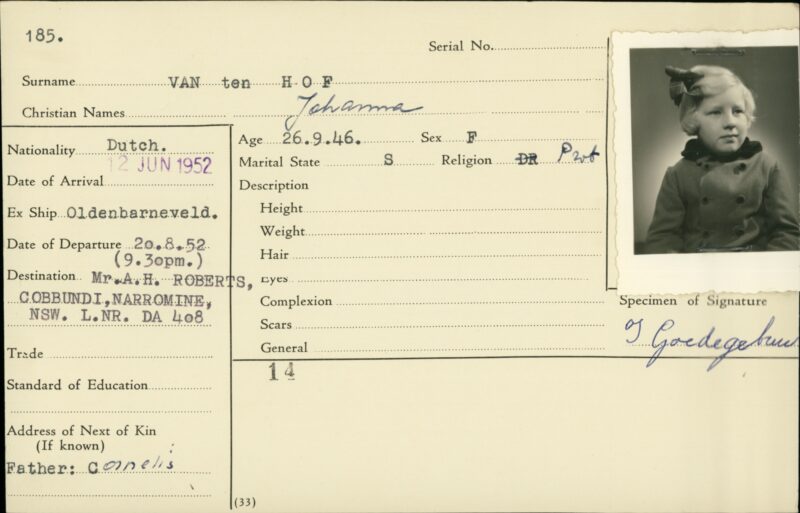 185.
Serial No.
Surname VAN ten HOF
Christian Names Johanna
Nationality Dutch.
12 JUN 1952
Date of Arrival
Ex Ship Oldenbarneveld.
Date of Departure 20.8.52
(9.30pm.)
Destination Mr.A.H. ROBERTS,
COBBUNDI,NARROMINE,
NSW. L.NR. DA 408
Trade
Standard of Education
Address of Next of Kin
(If known)
Father: Cornelis
Age 26.9.46. Sex F
Marital State S Religion DR Prot
Description
Height
Weight
Hair
Eyes
Complexion
Scars
General
14
(33)
Specimen of Signature